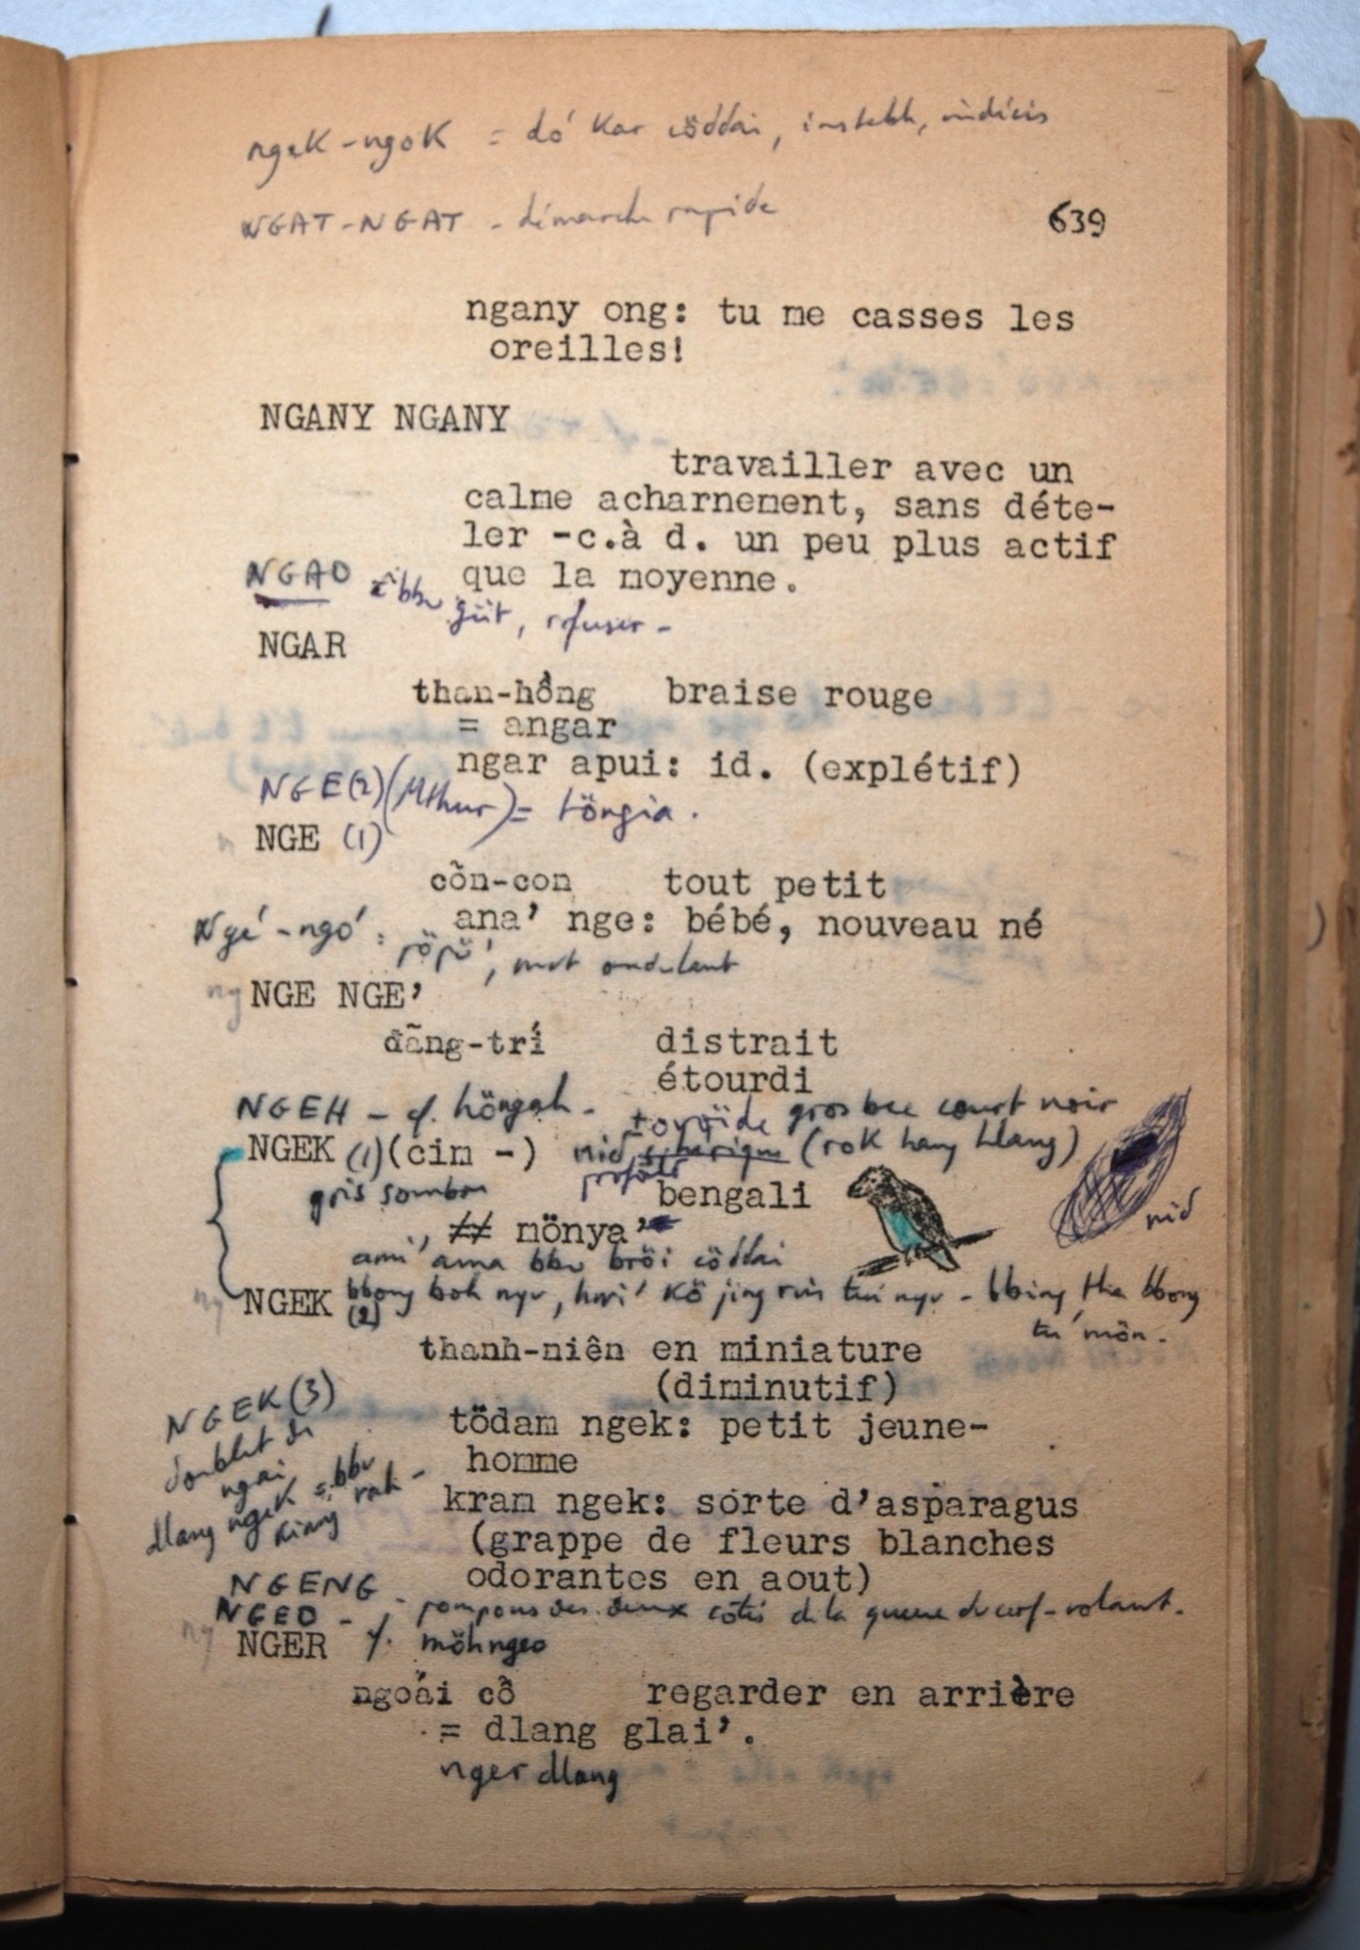 ngek-ngok = dó kar cöđđai, instable, indécis
NGAT-NGAT - démarche rapide
639
ngany ong: tu me casses les
oreilles!
NGANY NGANY
travailler avec un
calme acharnement, sans déte-
ler -c.à d. un peu plus actif
que la moyenne.
NGAO bbu güt, refuser -
NGAR
than-hồng braise rouge
= angar
ngar apui: id. (explétif)
NGE(2) (Mthur) = töngia.
NGE (1)
còn-con tout petit
ana' nge: bébé, nouveau né
Ngé-ngó: mot ondulant
ny NGE NGE'
đãng-trí distrait
étourdi
NGEH - cf. höngeh - gros bec court noir
NGEK (1)(cim -) nid (rok hang hlang)
gris sombre bengali
mönya'
nid
ami' ama bbu bröi cöđđai
ny NGEK (2) bbong boh nyu, kö jing tui nyu - bbing bbong
tu mön.
thanh-niên en miniature
(diminutif)
NGEK(3)
doublet de
ngai
dlang ngek = bbu
tödam ngek: petit jeune-
homme
kram ngek: sorte d'asparagus
(grappe de fleurs blanches
odorantes en aout)
NGENG - pompons des deux cotés de la queue du cerf-volant.
NGEO - cf. möhngeo
ny NGER
ngoái cổ regarder en arrière
= dlang glai'.
nger dlang